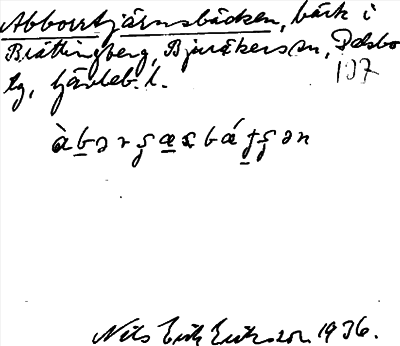 Abborrtjärnsbäcken, bäck i
Brättingberg, Bjuråkers sn, Delsbo
tg, Gävleb. l.
107
Nils Erik Eriksson 1936.